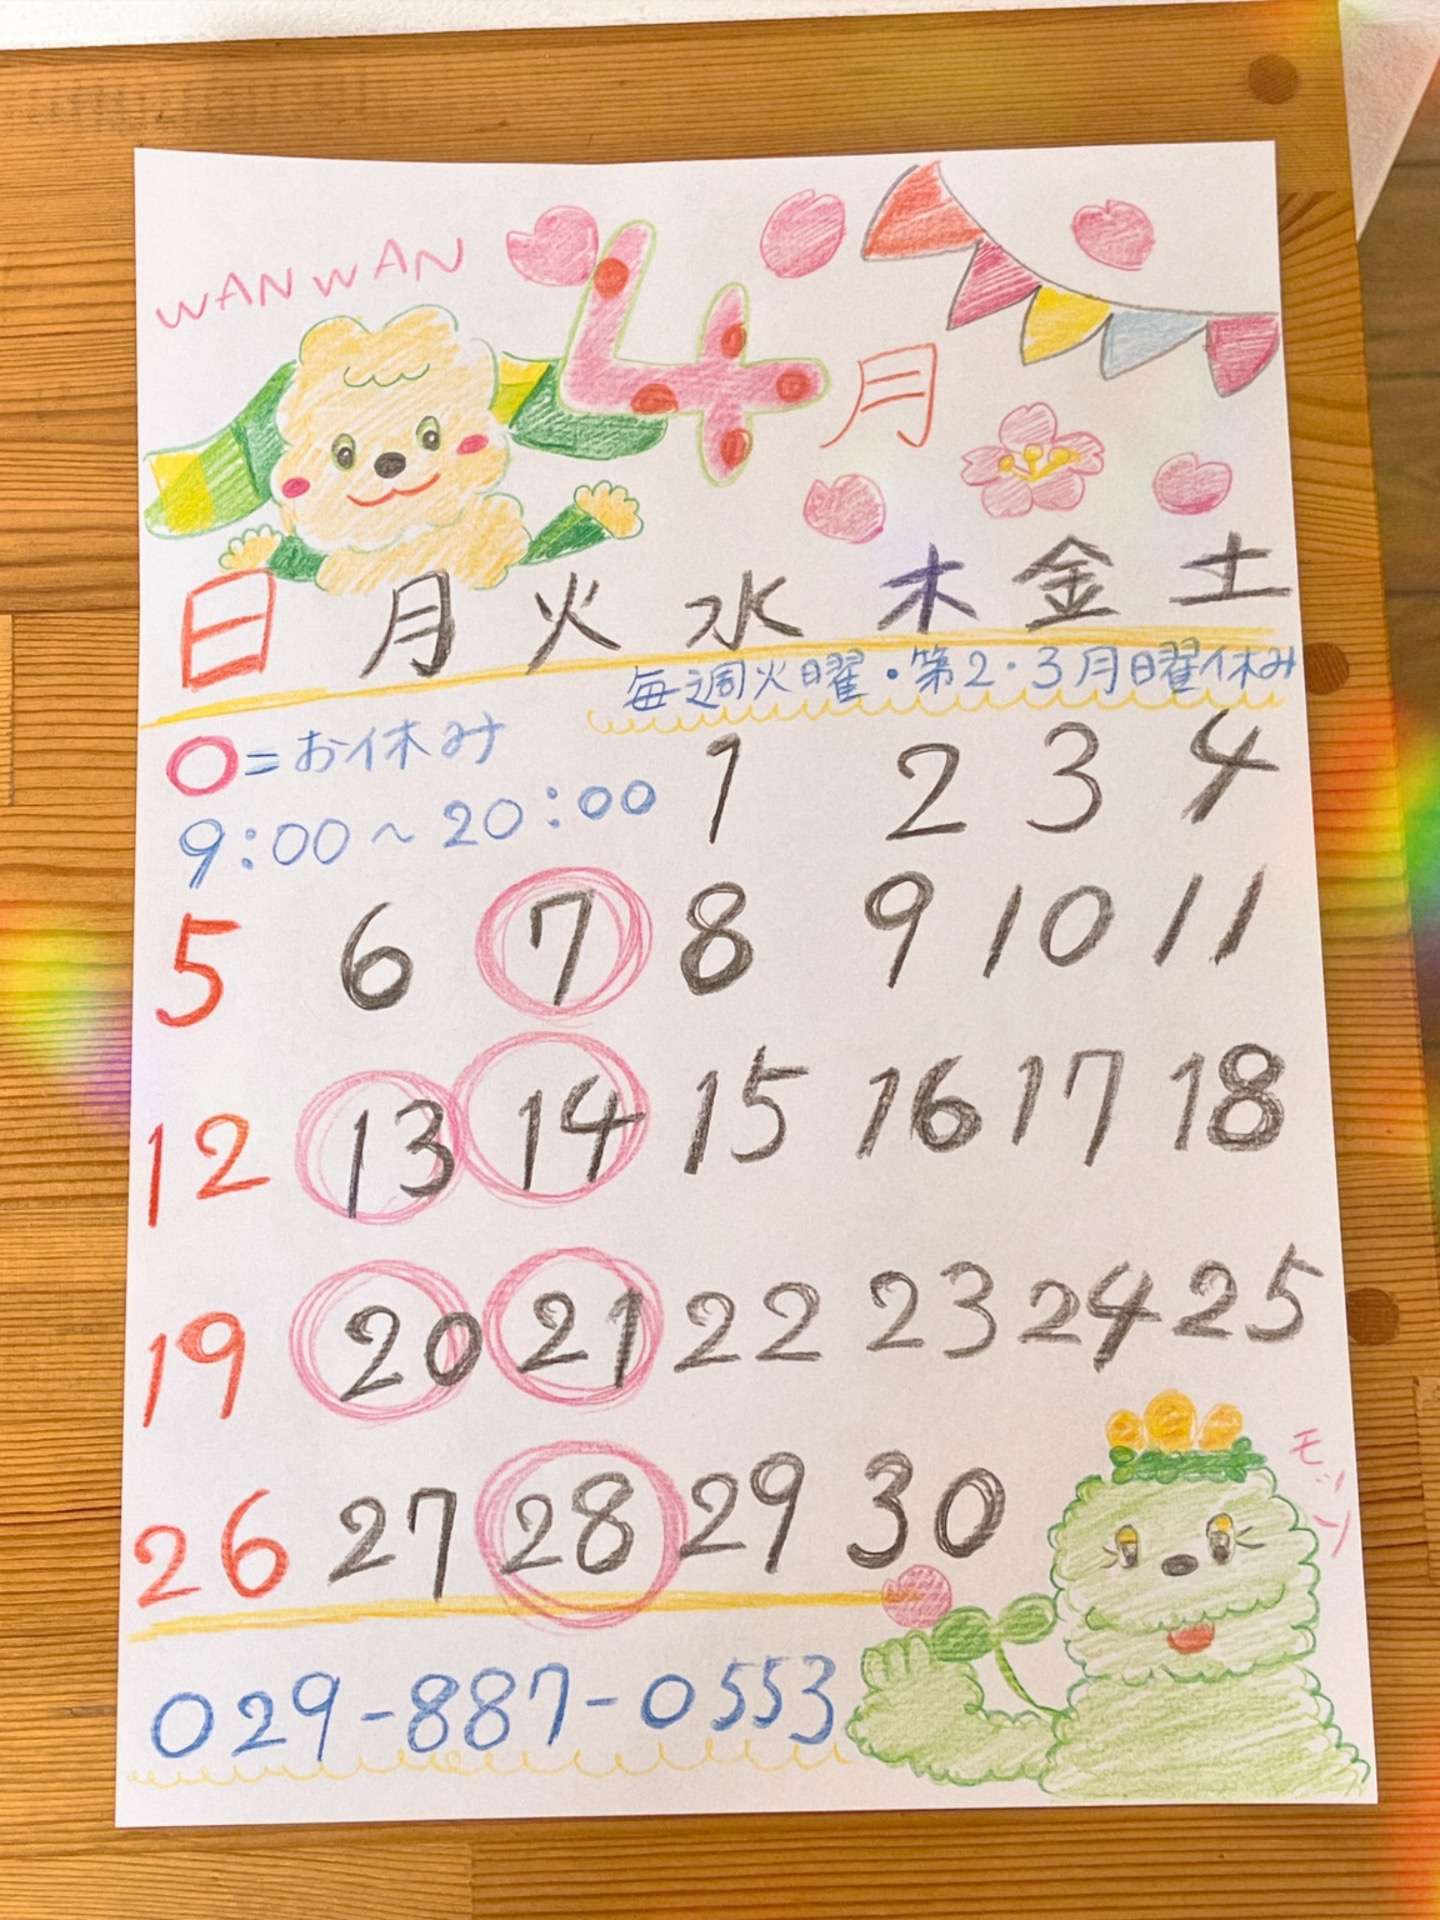 WANWAN
4月
日 月 火 水 木 金 土
毎週火曜・第2・3月曜休み
○=お休み
9:00～20:00
1 2 3 4
5 6 7 8 9 10 11
12 13 14 15 16 17 18
19 20 21 22 23 24 25
26 27 28 29 30
029-887-0553